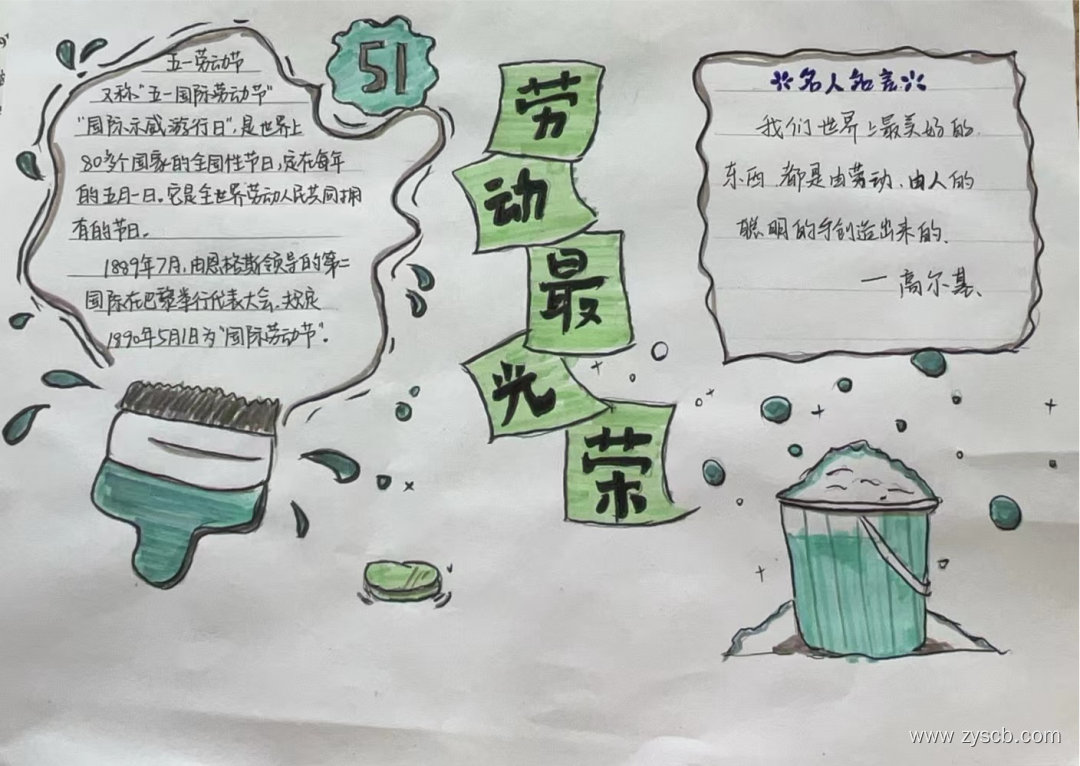 五一劳动节
又称"五一国际劳动节"
"国际示威游行日",是世界上
80多个国家的全国性节日,定在每年
的五月一日。它是全世界劳动人民共同拥
有的节日。
1889年7月,由恩格斯领导的第二
国际在巴黎举行代表大会,规定
1890年5月1日为"国际劳动节"。
51
劳
动
最
光
荣
名人名言
我们世界上最美好的
东西,都是由劳动、由人的
聪明的手创造出来的、
一高尔基、
www.zyscb.com